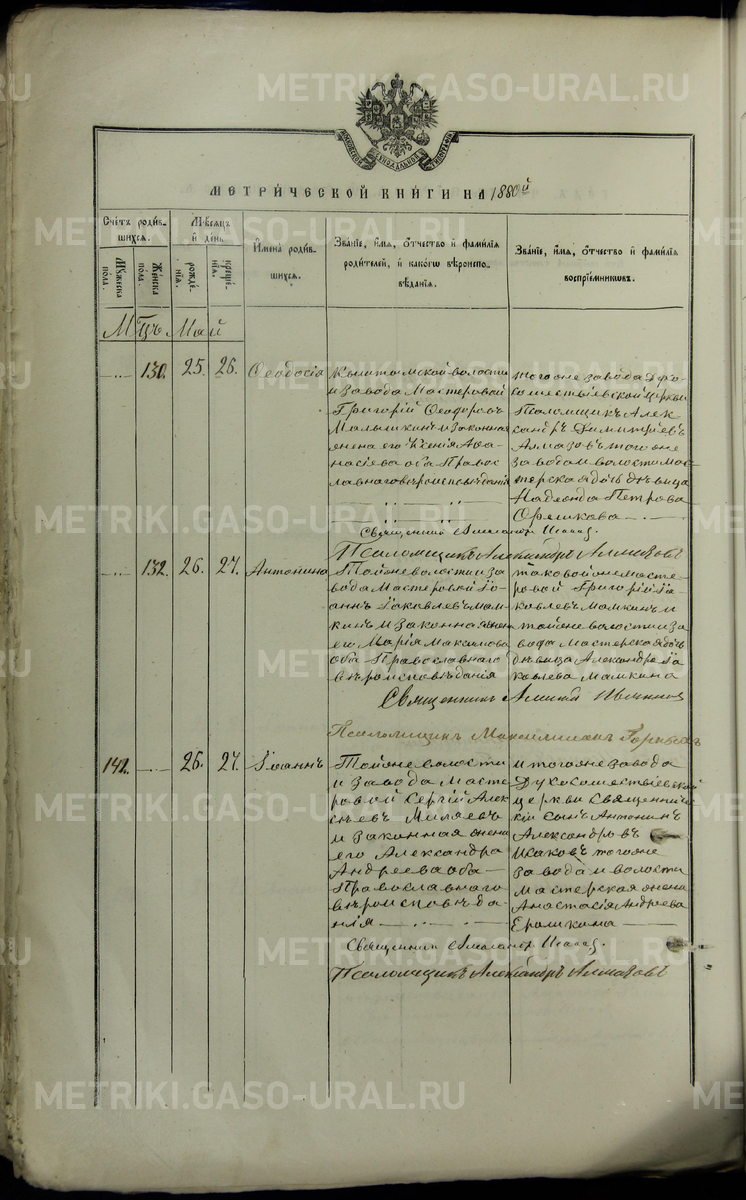 METRIKI.GASO-URAL.RU
МОСКОВСКОЙ СИНОДАЛЬНОЙ ТИПОГРАФІИ
МЕТРИ́ЧЕСКОЙ КНИ́ГИ НА 1880й
Счетъ роди́вшихся.
Мѣсяцъ и день
И́мена роди́вшихся.
Зва́ніе, и́мя, о́тчество и фами́лія родителей, и како́гѡ вѣроисповѣ́данія.
Зва́ніе, и́мя, о́тчество и фами́лія воспріе́мниковъ.
Мужеска пола.
Женска пола.
рожде́нія.
креще́нія.
Мцъ Май
130. 25. 26. Ѳеодосія
Кыштымской волости
и завода Мастеровой
Григорій Ѳеодоровъ
Малышкинъ и законная
жена его Ксенія Аѳа-
насіева оба Правос
лавнаго вѣроисповѣданія
тогоже завода Духо-
сошествіевской церкви
Псаломщикъ Алек
сандръ Димитріевъ
Алмазовъ тогоже
завода и волости Мас-
терская дочь дѣвица
Надежда Петрова
Священникъ Александръ
Псаломщикъ Александръ Алмазовъ
132. 26. 27. Антонина
Тойже волости и за
вода Мастеровой Іо-
аннъ Іаковлевъ Мам-
кинъ и законная жена
его Марія Максимова
оба Православнаго
вѣроисповѣданія
таковойже масте-
ровой Григорій Іа-
ковлевъ Мамкинъ и
тойже волости и за
вода Мастерская дочь
дѣвица Александра Іа
ковлева Мамкина
Священникъ
Псаломщикъ
142. 26. 27. Іоаннъ
Тойже волости
и завода Масте-
ровой Сергій Алек
сѣевъ Миляевъ
и законная жена
его Александра
Андреева оба
Православнаго
вѣроисповѣда-
нія
и тогоже завода
Духосошествіевской
церкви Священниче
скій сынъ Антонинъ
Александровъ
Исаковъ тогоже
завода и волости
Мастерская жена
Анастасія Андреева
Ермикона
Священникъ Александръ
Псаломщикъ Александръ Алмазовъ